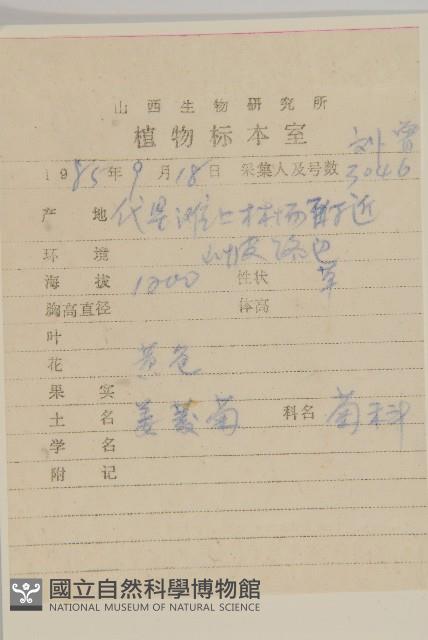 山西生物研究所
植物标本室
刘 曾
1985年9月18日 采集人及号数 3046
产地 代县滩上林场附近
环境 山坡路边
海拔 1200 性状 草
胸高直径 体高
叶
花 黄色
果实
土名 菊 科名 菊科
学名
附记
國立自然科學博物館
NATIONAL MUSEUM OF NATURAL SCIENCE